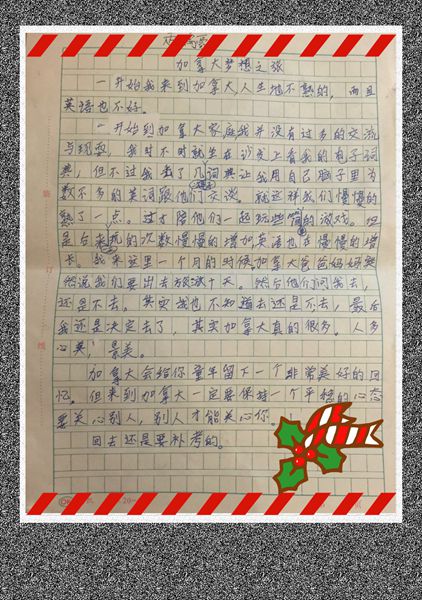 加拿大梦想之旅
一开始我来到加拿大人生地不熟的,而且
英语也不好。
一开始到加拿大家庭我并没有过多的交流
与玩耍,我时不时就坐在沙发上看我的电子词
典,但不过我截了几词典让我用自己脑子里为
数不多的英词跟他们交谈。就这样我们慢慢的
熟了一点。过才陪他们一起玩些简的游戏。但
是后来玩的次数慢慢的增加,英语也在慢慢的增
长。我来这里一个月的时候,加拿大爸爸妈妈突
然说我们要出去旅游十天。然后他们问我去,
还是不去。其实我也不知道去还是不去,最后
我还是决定去了,其实加拿大真的很多。人多
心美,景美。
加拿大会给你童年留下一个非常美好的回
忆。但来到加拿大一定要保持一个平稳的心态
要关心别人,别人才能关心你。
回去还是要补考的。